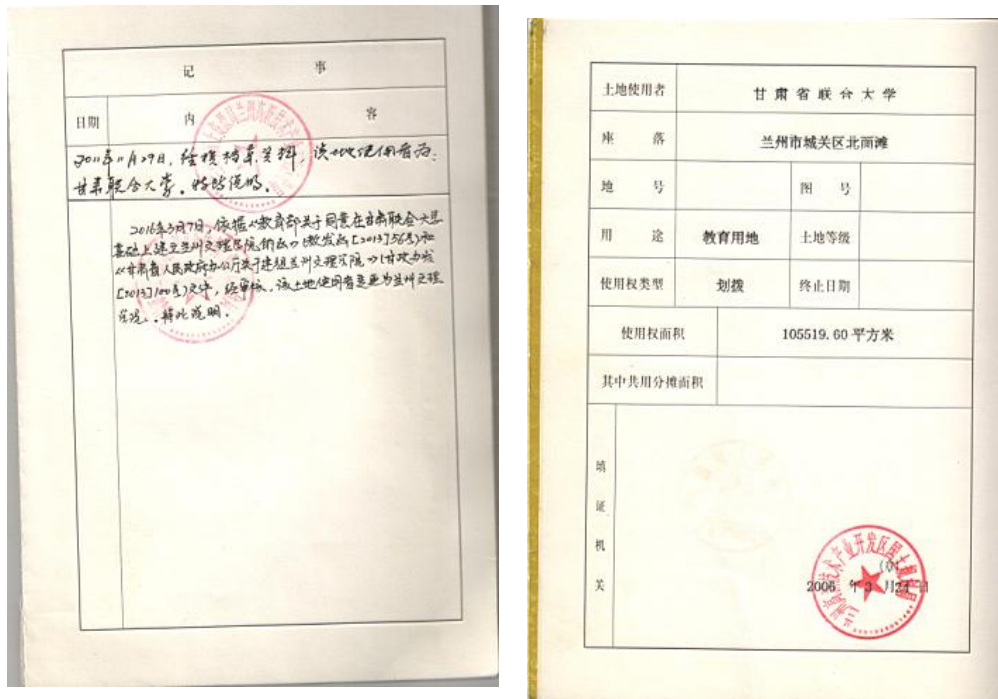 记 事
日期 内 容
2011年11月29日,经核档案资料,该地使用者为:
甘肃联合大学。特此说明。
2016年3月7日,依据《教育部关于同意在甘肃联合大学
基础上建立兰州文理学院的函》(教发函[2013]56号)和
《甘肃省人民政府办公厅关于建立兰州文理学院》(甘政办发
[2013]100号)文件,经审核,该土地使用者变更为兰州文理
学院。特此说明。
土地使用者 甘肃省联合大学
座 落 兰州市城关区北面滩
地 号 图 号
用 途 教育用地 土地等级
使用权类型 划拨 终止日期
使用权面积 105519.60平方米
其中共用分摊面积
填证机关
(章)
2006 年 3 月24 日